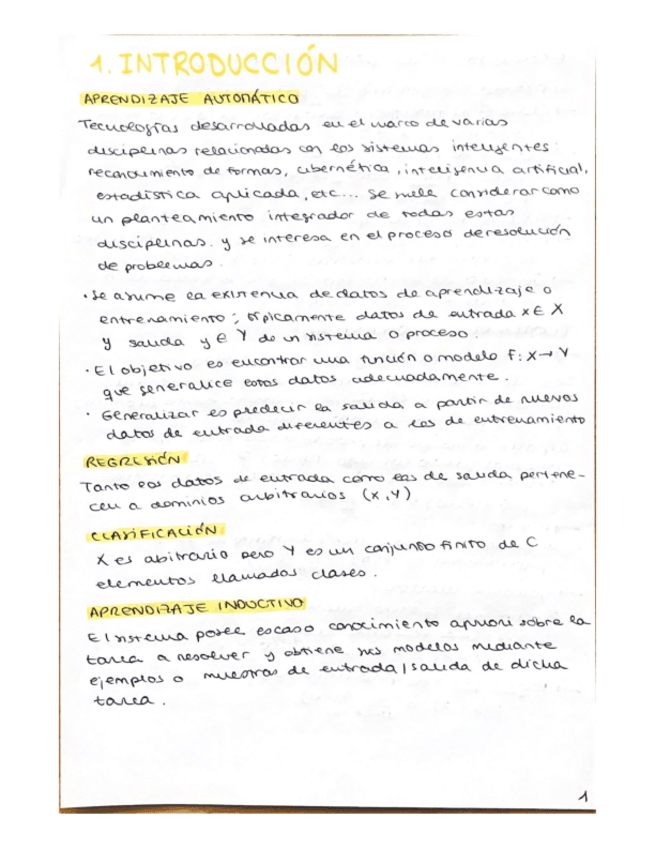 1. INTRODUCCIÓN
APRENDIZAJE AUTOMÁTICO
Tecnologías desarrolladas en el marco de varias
disciplinas relacionadas con los sistemas inteligentes:
reconocimiento de formas, cibernética, inteligencia artificial,
estadística aplicada, etc... Se suele considerar como
un planteamiento integrador de todas estas
disciplinas. y se interesa en el proceso de resolución
de problemas.
· Se asume la existencia de datos de aprendizaje o
entrenamiento; típicamente datos de entrada x ∈ X
y salida y ∈ Y de un sistema o proceso.
· El objetivo es encontrar una función o modelo f: X→Y
que generalice estos datos adecuadamente.
· Generalizar es predecir la salida a partir de nuevos
datos de entrada diferentes a los de entrenamiento
REGRESIÓN
Tanto los datos de entrada como las de salida pertene-
cen a dominios arbitrarios (X,Y)
CLASIFICACIÓN
X es abitrario pero Y es un conjunto finito de C
elementos llamados clases.
APRENDIZAJE INDUCTIVO
El sistema posee escaso conocimiento apriori sobre la
tarea a resolver y obtiene sus modelos mediante
ejemplos o muestras de entrada/salida de dicha
tarea.
1